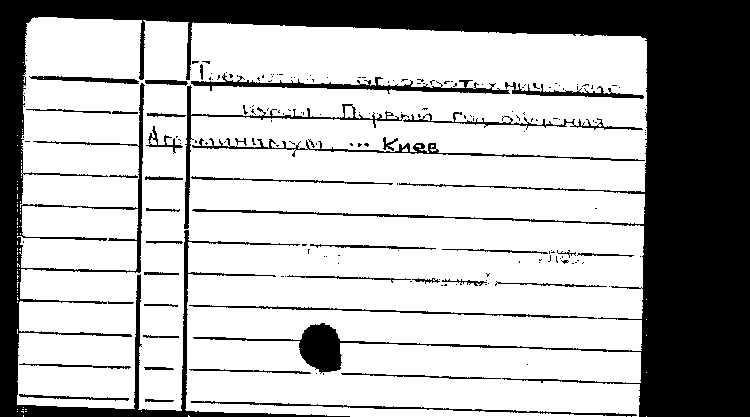 Трехлетние агрозоотехнические
курсы. Первый год обучения
Агроминимум. ... Киев